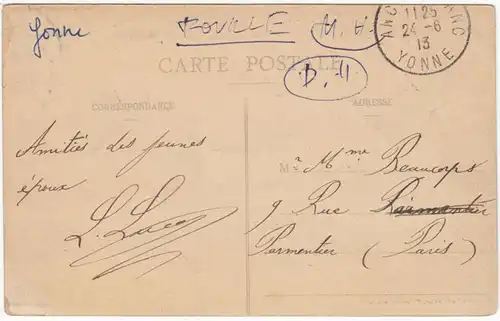 Yonne
FOULLE M. H.
11 25
24 - 6
13
YONNE
CARTE POSTALE
D. 4
CORRESPONDANCE
ADRESSE
Amitiés des jeunes
époux
Mr Mme Beaucorps
9 Rue Parmentier
Parmentier (Paris)